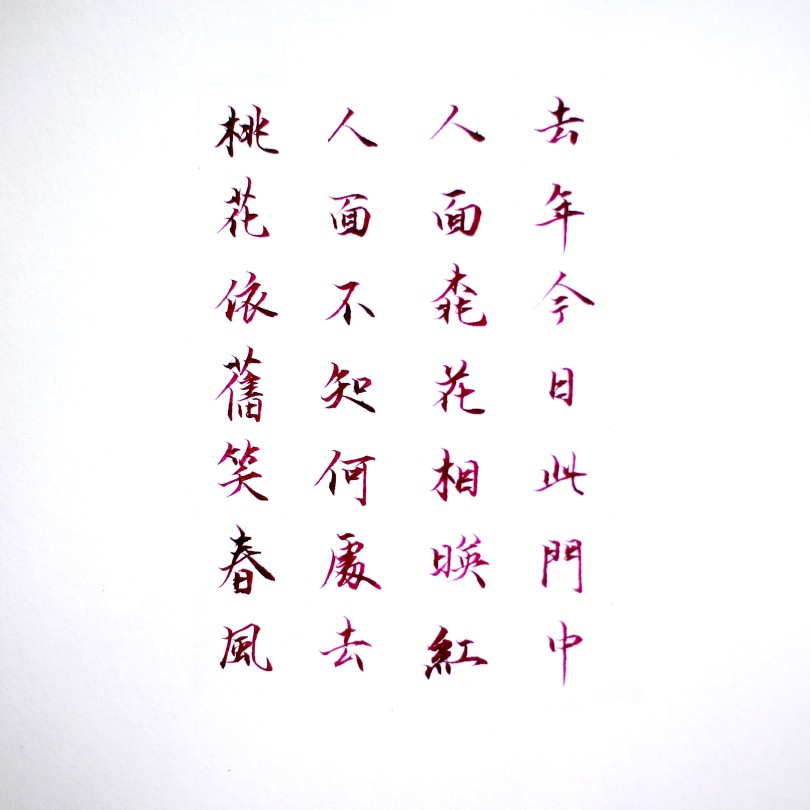 去年今日此門中
人面桃花相暎紅
人面不知何處去
桃花依舊笑春風